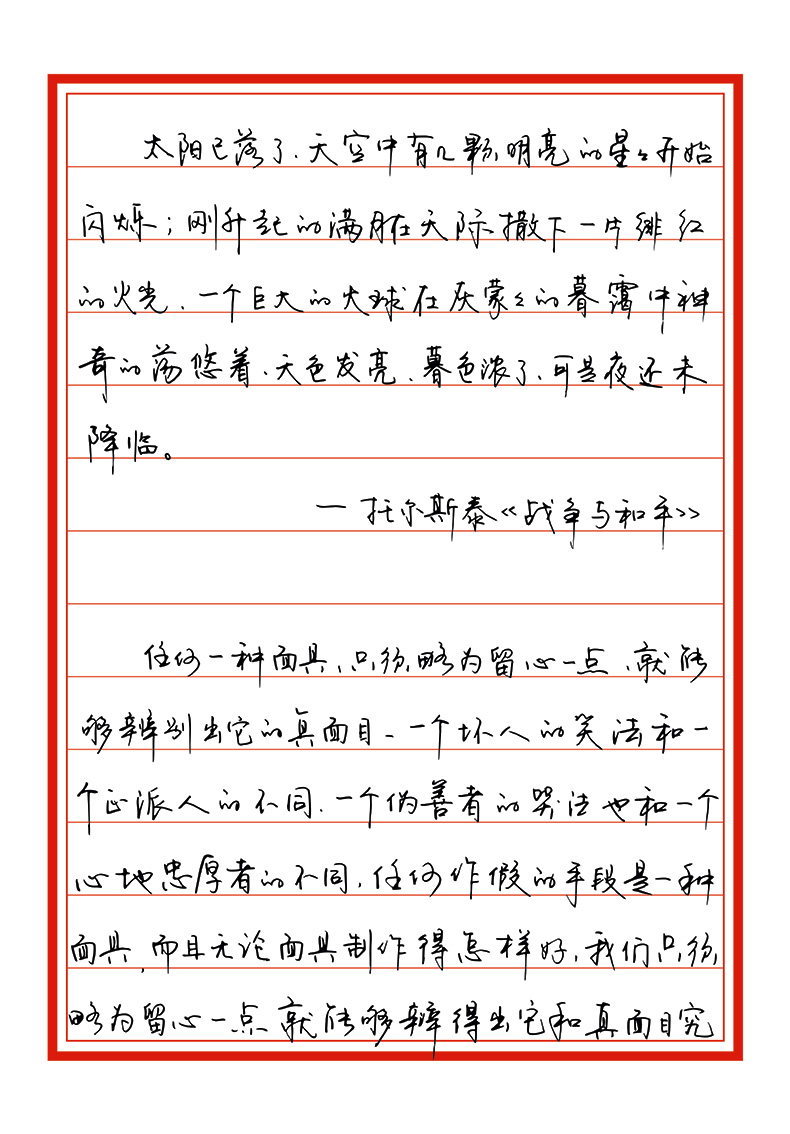 太阳已落了、天空中有几颗明亮的星星开始
闪烁；刚升起的满月在天际撒下一片绯红
的火光、一个巨大的火球在灰蒙蒙的暮霭中神
奇的荡悠着、天色发亮、暮色浓了、可是夜还未
降临。
— 托尔斯泰《战争与和平》
任何一种面具、只须略为留心一点、就能
够辨别出它的真面目、一个坏人的笑法和一
个正派人的不同、一个伪善者的哭法也和一个
心地忠厚者的不同、任何作假的手段是一种
面具，而且无论面具制作得怎样好、我们只须
略为留心一点就能够辨得出它和真面目究